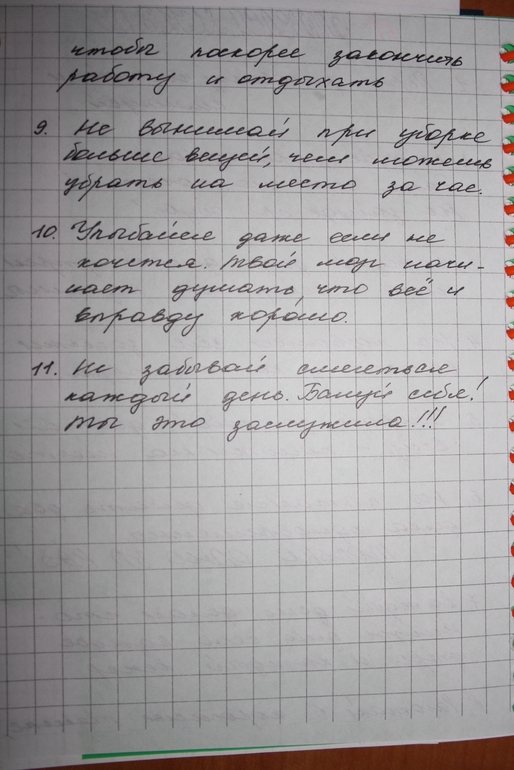 чтобы поскорее закончить
работу и отдыхать
9. Не вынимай при уборке
больше вещей, чем можешь
убрать на место за час.
10. Улыбайся даже если не
хочется. Твой мозг начи-
нает думать, что всё и
вправду хорошо.
11. Не забывай смеяться
каждый день. Балуй себя!
Ты это заслужила!!!